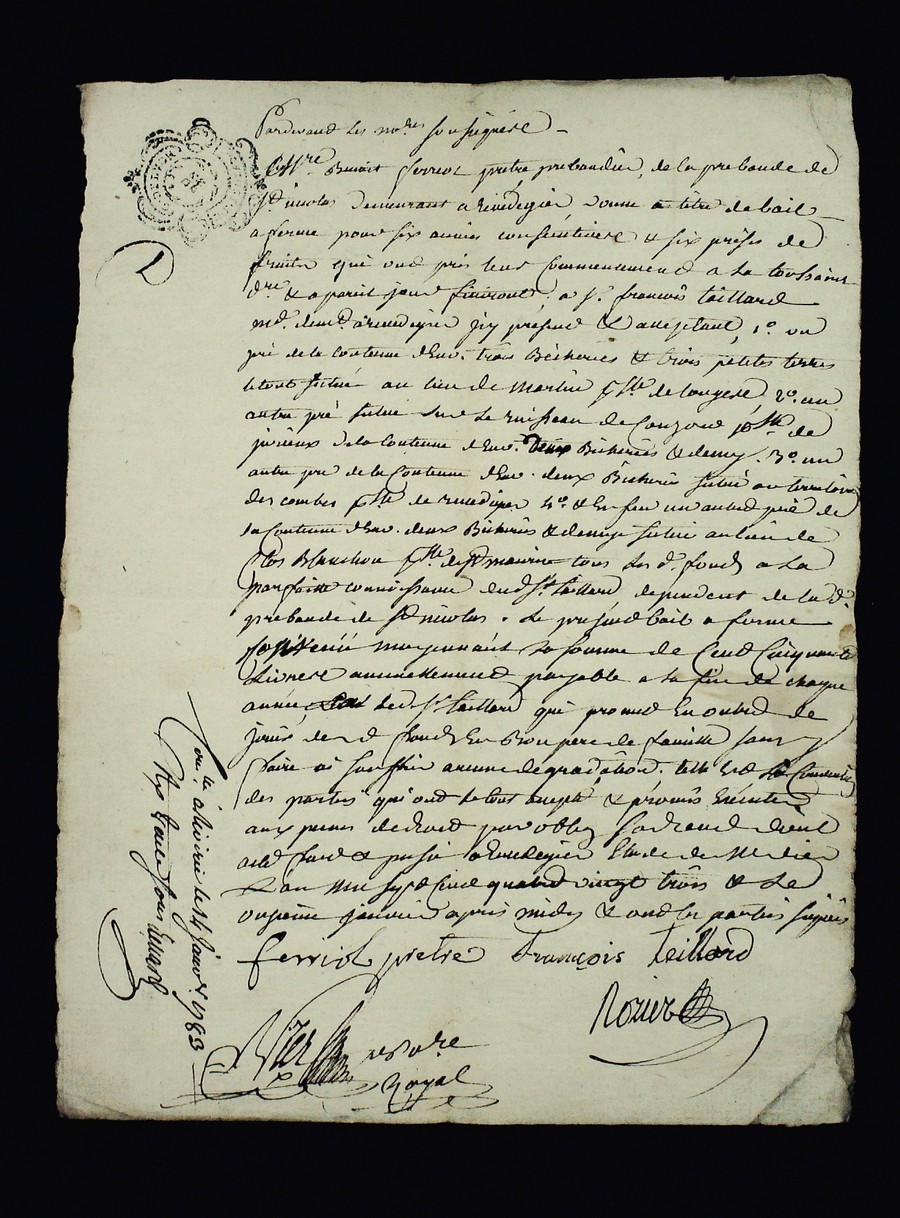 Pardevant les no.res soussignés
M.re Benoit ferriol prêtre prebandier de la prebande de
St nicolas demeurant a donne a titre de bail
a ferme pour six années consecutives & six prises de
fruits qui ont pris leur commencement a la toussaint
d.re & a pareil jour finiront a S.r françois taillard
m.d dem.t a icy présent & acceptant, 1.o un
pré de la contenue d'Env. trois Bicherées & trois petites terres
le tout situé au lieu de martin p.sse de 2.o un
autre pré situé sur le ruisseau de Couzon p.sse de
de la contenue d'Env. deux Bicherées & demy. 3.o un
autre pré de la contenue d'Env. deux Bicherées situé au territoire
des combes p.sse de 4.o & Enfin un autre pré de
la Contenue d'Env. deux Bicherées & demye situé au lieu de
Clos p.sse de St maurice tous les d. fonds a la
parfaite connoissance dud. Sr taillard dependent de lad.
prebande de St nicolas. Le présent bail a ferme
moyennant la somme de Cent Cinquante
Livres annuellement payable a la fin de chaque
année led. Sr taillard qui promet En outre de
jouir desd. fonds En Bon pere de famille sans y
faire ni souffrir aucune degradation. telle Est la
des parties qui ont le tout accepté & promis Exécuter
aux peines de droit par oblig.
acte fait & passé a Etude de
L'an mil sept cent quatre vingt trois & Le
onzieme janvier après midy & ont les parties signés
ferriol prêtre françois teillard
Rozier
no.re
Royal
à le 14 janv.r 1783